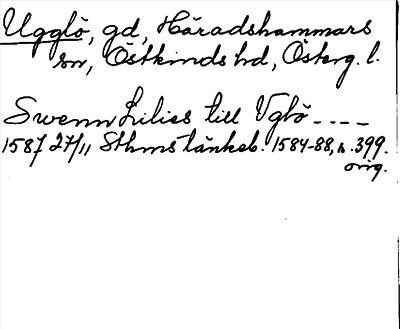 Ugglö, gd, Häradshammars
sn, Östkinds hd, Österg. l.
Swenn Lilies till Vglö ----
1587 27/11 Sthms tänkeb. 1584-88, s. 399.
orig.